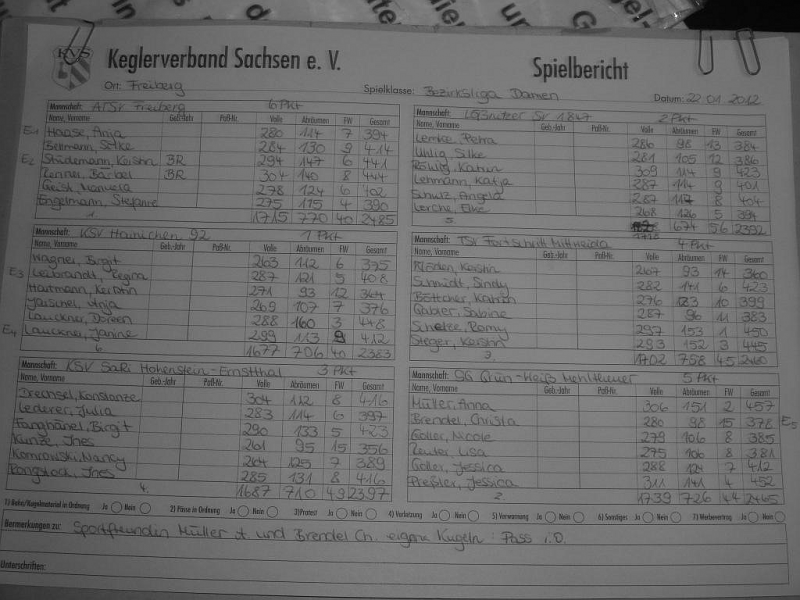 KVS
Keglerverband Sachsen e. V.
Spielbericht
Ort: Freiberg
Spielklasse: Bezirksliga Damen
Datum: 22.01.2012
Mannschaft: ATSV Freiberg 6 Pkt
Name, Vorname Geb.-Jahr Paß-Nr. Volle Abräumen FW Gesamt
E1 Haase, Anja 280 114 7 394
Bellmann, Silke 284 130 9 414
E2 Kerstin BR 294 147 6 441
Renner, Bärbel BR 304 140 8 444
Manuela 278 124 6 402
Engelmann, Stefanie 275 115 4 390
1. 1715 770 40 2485
Mannschaft: 1847 2 Pkt
Name, Vorname Geb.-Jahr Paß-Nr. Volle Abräumen FW Gesamt
Lemke, Petra 286 98 13 384
Uhlig, Silke 281 105 12 386
Katrin 309 114 9 423
Lehmann, Katja 287 114 9 401
Schulz, Angela 287 117 8 404
Lerche, Elke 268 126 5 394
5. 1718 674 56 2392
Mannschaft: KSV Hainichen 92 1 Pkt
Name, Vorname Geb.-Jahr Paß-Nr. Volle Abräumen FW Gesamt
Wagner, Birgit 263 112 6 375
E3 Leibrandt, Regina 287 121 5 408
Hartmann, Kerstin 271 93 12 364
Anja 269 107 7 376
Lauckner, Doreen 288 160 3 448
E4 Lauckner, Janine 299 113 9 412
6. 1677 706 40 2383
Mannschaft: TSV Fortschritt Mittweida 4 Pkt
Name, Vorname Geb.-Jahr Paß-Nr. Volle Abräumen FW Gesamt
Kerstin 267 93 14 360
Schmidt, Sindy 282 141 6 423
Böttcher, Katrin 276 123 10 399
Sabine 287 96 11 383
Romy 297 153 1 450
Steger, Kerstin 293 152 3 445
3. 1702 758 45 2460
Mannschaft: KSV SaRi Hohenstein-Ernstthal 3 Pkt
Name, Vorname Geb.-Jahr Paß-Nr. Volle Abräumen FW Gesamt
Drechsel, Konstanze 304 112 8 416
Lederer, Julia 283 114 6 397
Fanghänel, Birgit 290 133 5 423
Kunze, Ines 261 95 15 356
Komrowski, Nancy 264 125 7 389
Ines 285 131 8 416
4. 1687 710 49 2397
Mannschaft: SG Grün-Weiß Mehltheuer 5 Pkt
Name, Vorname Geb.-Jahr Paß-Nr. Volle Abräumen FW Gesamt
Müller, Anna 306 151 2 457
Brendel, Christa 280 98 15 378 E5
Göller, Nicole 279 106 8 385
Reuter, Lisa 275 106 8 381
Göller, Jessica 288 124 7 412
Preßler, Jessica 311 141 4 452
2. 1739 726 44 2465
1) Bahn/Kugelmaterial in Ordnung Ja Nein 2) Pässe in Ordnung Ja Nein 3) Protest Ja Nein 4) Verletzung Ja Nein 5) Verwarnung Ja Nein 6) Sonstiges Ja Nein 7) Werbevertrag Ja Nein
Bemerkungen zu: Sportfreundin Müller A und Brendel Ch. eigene Kugeln: Pass i.O.
Unterschriften: